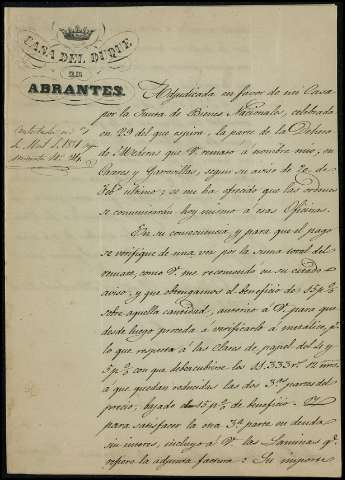 CASA DEL DUQUE
DE
ABRANTES.
Adjudicada en favor de mi Casa
por la Junta de Bienes Nacionales, celebrada
en 29 del que espira, la parte de la Dehesa
de Mederos que V. remató á nombre mio, en
Caceres y Garrovillas, segun su aviso de 20 de
Feb.º ultimo; se me ha ofrecido que las ordenes
se comunicarán hoy mismo á esas Oficinas.
En su consecuencia, y para que el pago
se verifique de una vez por la suma total del
remate, como V. me recomendó en su citado
aviso; y que obtengamos el beneficio de 15 p.%
sobre aquella cantidad, autorizo á V. para que
desde luego proceda á verificarlo á metalico, p.r
lo que respecta á las Clases de papel del 4 y
5 p.% con que deba cubrirse los 18.333 r.s 12 mrs
á que quedan reducidas las dos 3.as partes del
precio, bajado el 15 p.% de beneficio. Y
para satisfacer la otra 3.a parte en deuda
sin interes, incluyo á V. las Laminas q.e
refiere la adjunta factura: Su importe